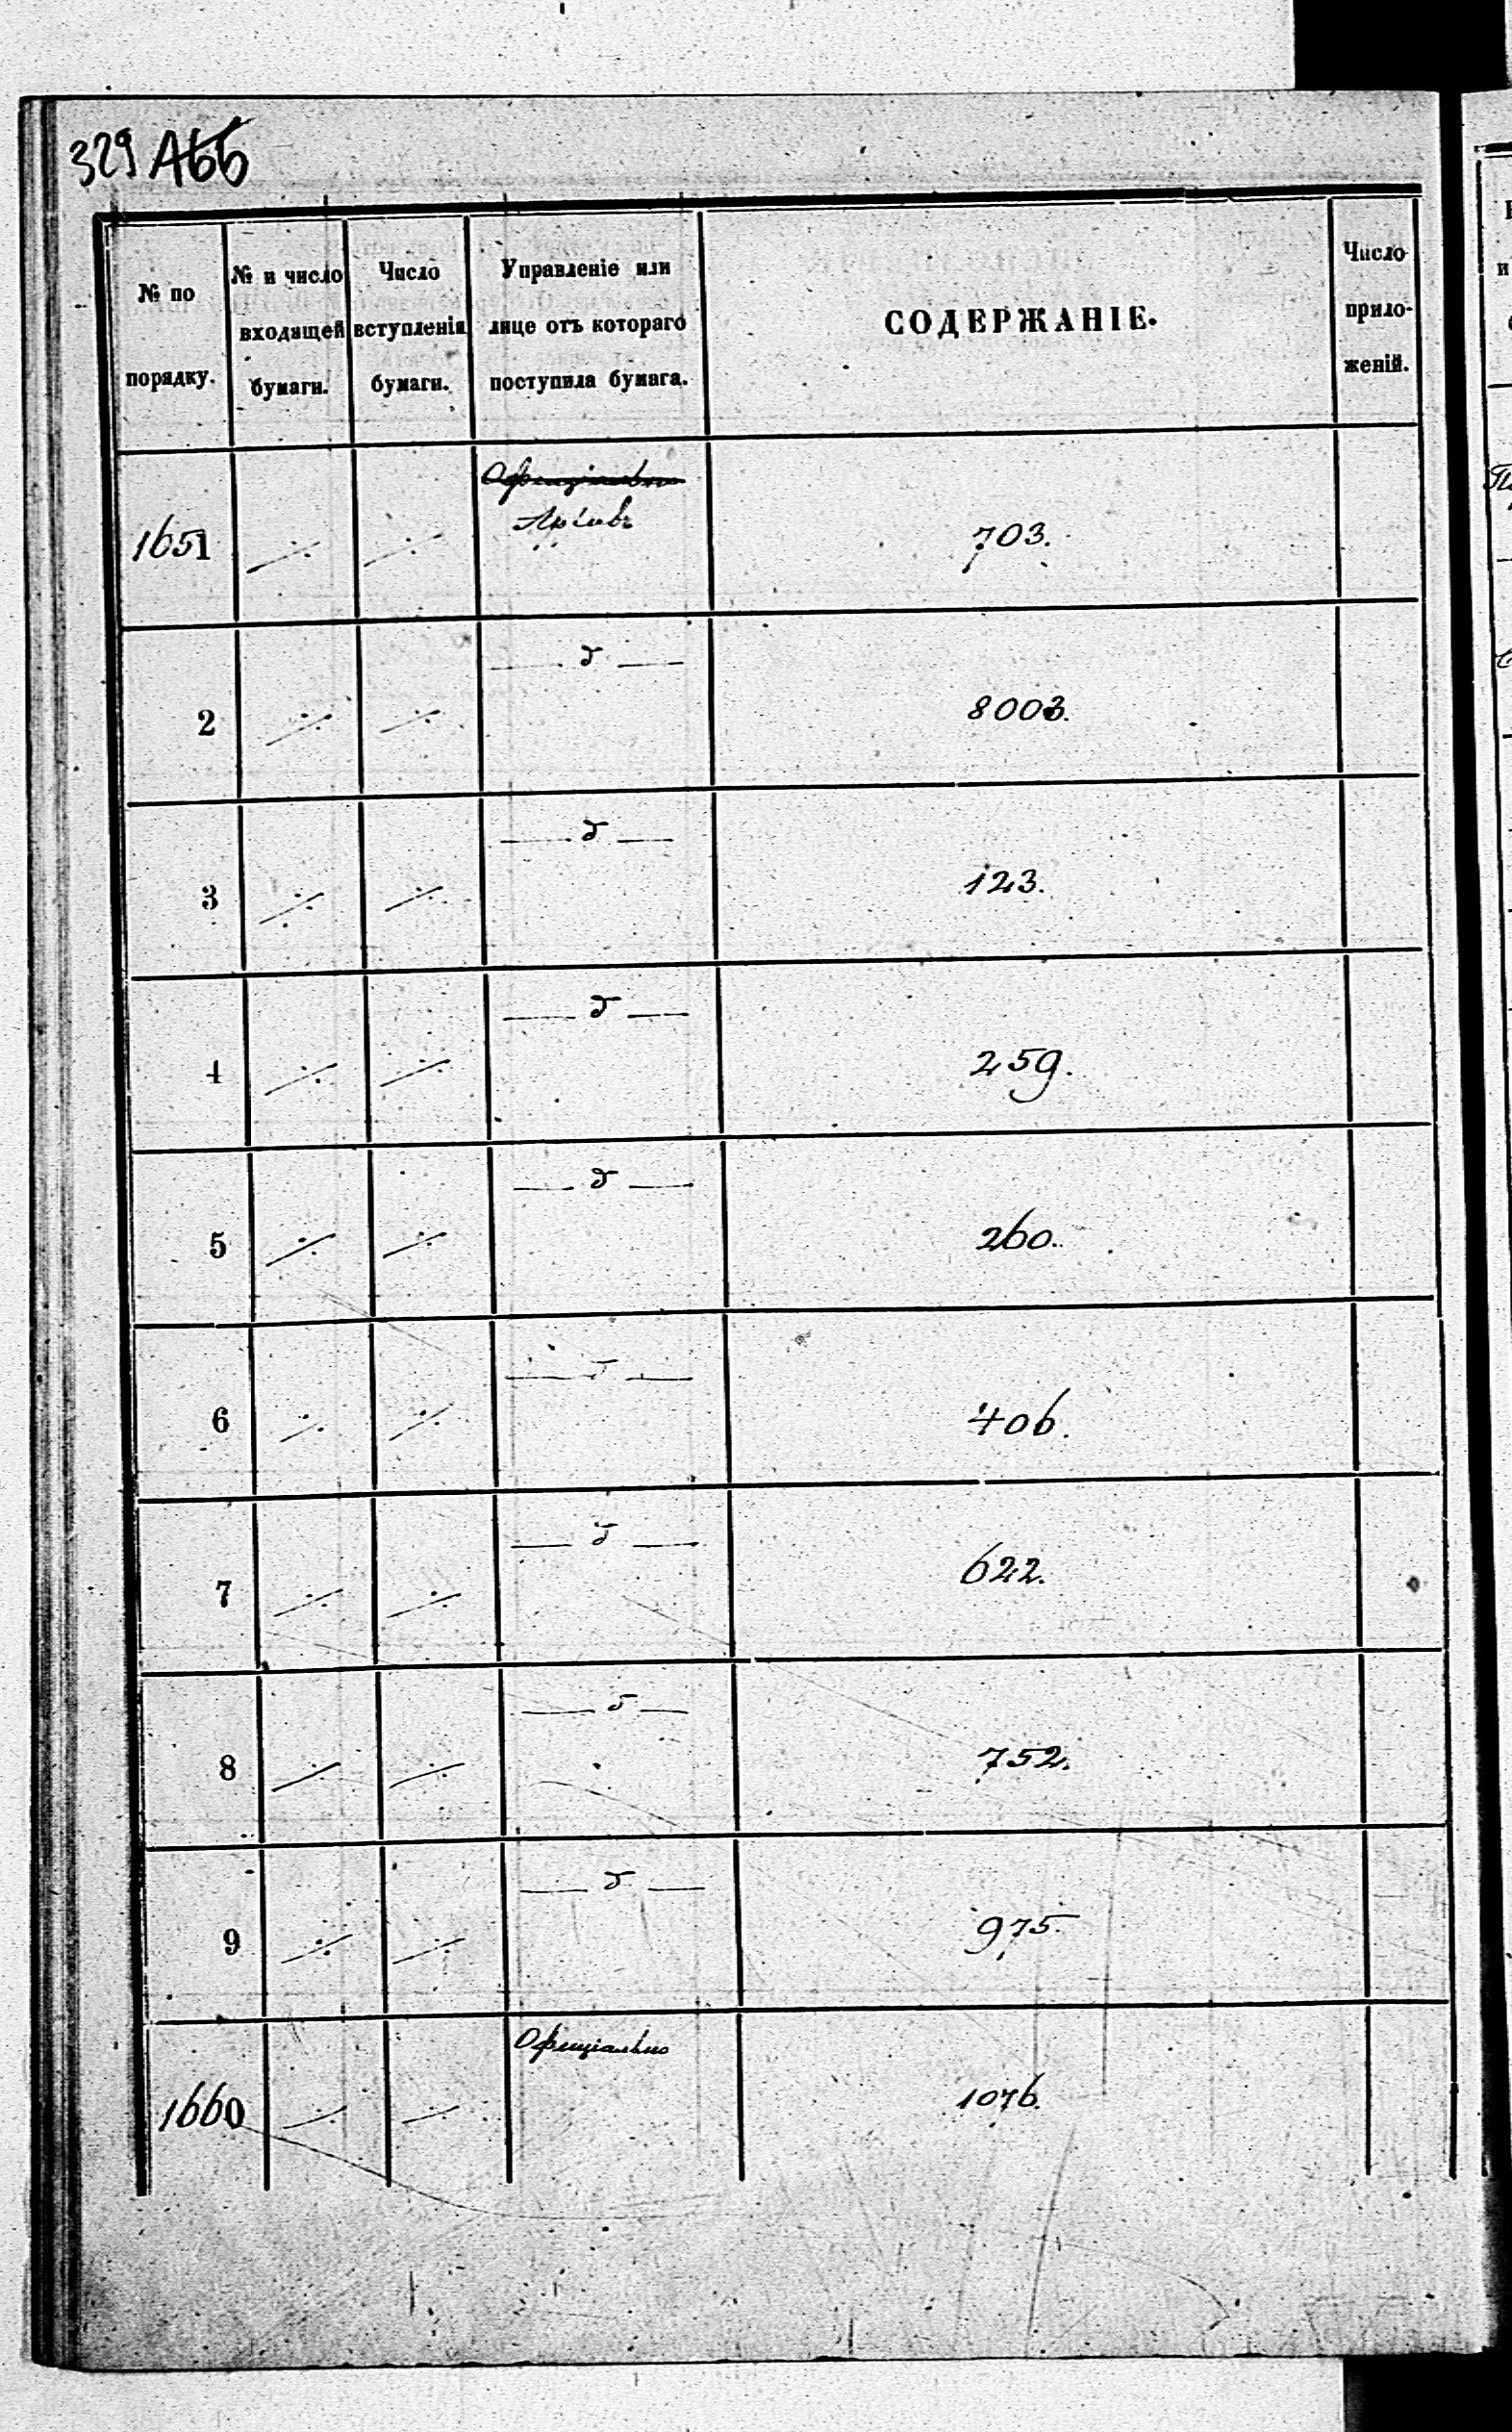 329
№ по порядку.
№ и число входящей бумаги.
Число вступленія бумаги.
Управленіе или лице отъ котораго поступила бумага.
СОДЕРЖАНІЕ.
Число прило-женій.
1651 ÷ ÷ Офиціально
Архивъ
703.
— д —
2 ÷ ÷ 8003.
— д —
3 ÷ ÷ 123.
— д —
4 ÷ ÷ 259.
— д —
5 ÷ ÷ 260.
— д —
6 ÷ ÷ 406.
— д —
7 ÷ ÷ 622.
— д —
8 ÷ ÷ 752.
— д —
9 ÷ ÷ 975.
Офиціально
1660 ÷ ÷ 1076.